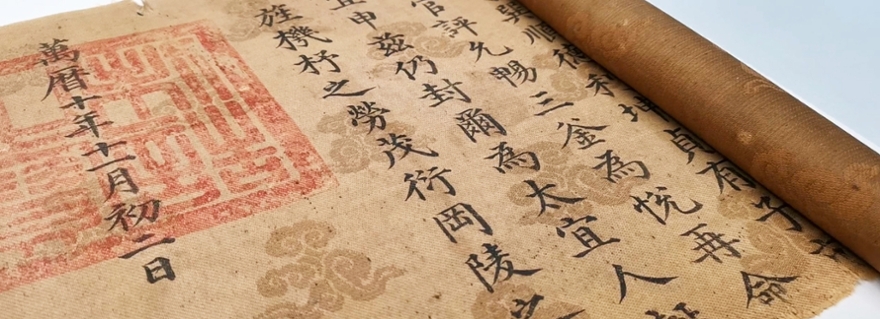 順德坤貞有子
官評允暢三釜為悅再命
申茲仍封爾為太宜人
旌機杼之勞茂衍岡陵
萬曆十年十一月初二日